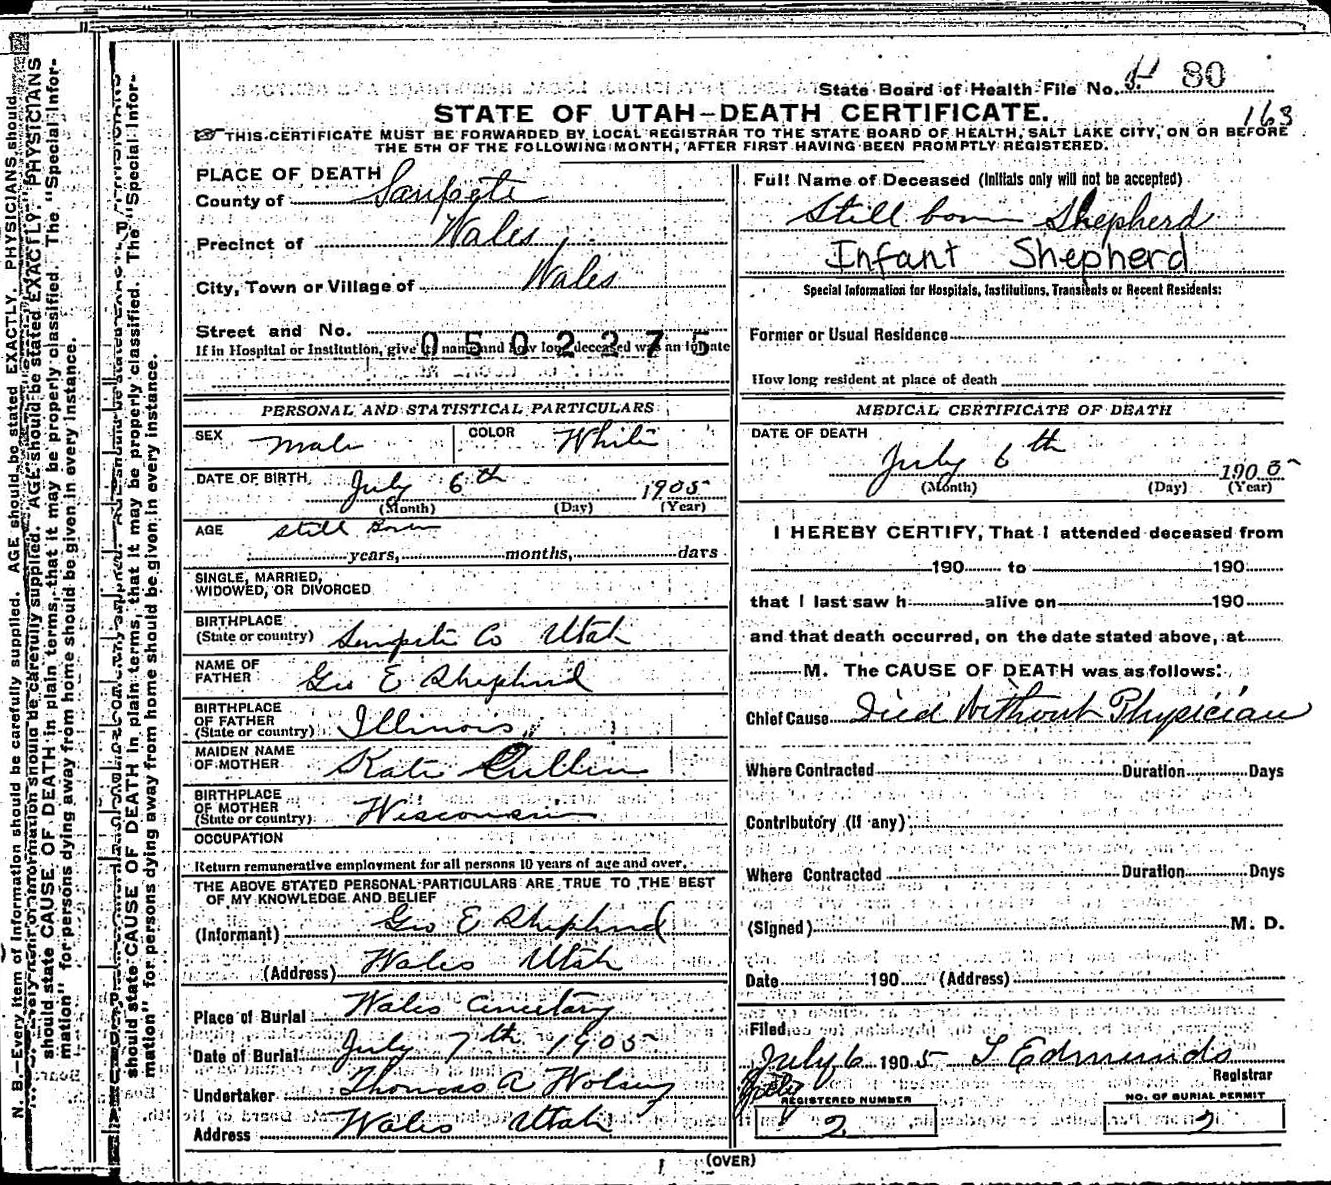 State Board of Health File No. 80
163
STATE OF UTAH—DEATH CERTIFICATE.
THIS CERTIFICATE MUST BE FORWARDED BY LOCAL REGISTRAR TO THE STATE BOARD OF HEALTH, SALT LAKE CITY, ON OR BEFORE
THE 5TH OF THE FOLLOWING MONTH, AFTER FIRST HAVING BEEN PROMPTLY REGISTERED.
PLACE OF DEATH
County of Sanpete
Precinct of Wales
City, Town or Village of Wales
Street and No.
0502275
If in Hospital or Institution, give its name and how long deceased was an inmate
PERSONAL AND STATISTICAL PARTICULARS
SEX Male COLOR White
DATE OF BIRTH July 6th 1905
(Month) (Day) (Year)
AGE Still Born
years, months, days
SINGLE, MARRIED,
WIDOWED, OR DIVORCED
BIRTHPLACE
(State or country) Sanpete Co Utah
NAME OF
FATHER Geo E Shepherd
BIRTHPLACE
OF FATHER
(State or country) Illinois
MAIDEN NAME
OF MOTHER Kate Cullin
BIRTHPLACE
OF MOTHER
(State or country) Wisconsin
OCCUPATION
Return remunerative employment for all persons 10 years of age and over.
THE ABOVE STATED PERSONAL PARTICULARS ARE TRUE TO THE BEST
OF MY KNOWLEDGE AND BELIEF
(Informant) Geo E Shepherd
(Address) Wales Utah
Place of Burial Wales Cemetary
Date of Burial July 7th 1905
Undertaker Thomas A Wolsey
Address Wales Utah
Full Name of Deceased (Initials only will not be accepted)
Still born Shepherd
Infant Shepherd
Special Information for Hospitals, Institutions, Transients or Recent Residents:
Former or Usual Residence
How long resident at place of death
MEDICAL CERTIFICATE OF DEATH
DATE OF DEATH
July 6th 1905
(Month) (Day) (Year)
I HEREBY CERTIFY, That I attended deceased from
190 to 190
that I last saw h alive on 190
and that death occurred, on the date stated above, at
M. The CAUSE OF DEATH was as follows:
Chief Cause Died Without Physician
Where Contracted Duration Days
Contributory (if any)
Where Contracted Duration Days
(Signed) M. D.
Date 190 (Address)
Filed
July 6 1905 Edmunds
Registrar
REGISTERED NUMBER
2
NO. OF BURIAL PERMIT
2
(OVER)
N. B.—Every item of information should be carefully supplied. AGE should be stated EXACTLY. PHYSICIANS should
should state CAUSE OF DEATH in plain terms, that it may be properly classified. The "Special Infor-
mation" for persons dying away from home should be given in every instance.
should state CAUSE OF DEATH in plain terms, that it may be properly classified. The "Special Infor-
mation" for persons dying away from home should be given in every instance.